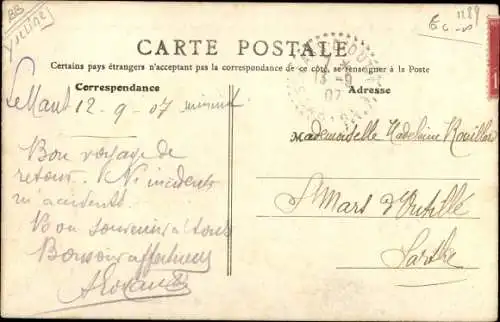 BB
Yveline
1189
CARTE POSTALE
Certains pays étrangers n'acceptant pas la correspondance de ce côté, se renseigner à la Poste
Correspondance
Adresse
Le Mans 12-9-07 minuit
Bon voyage de
retour. Ni incidents
ni accidents.
Bon souvenir à tous
Bonsoir affectueux
Mademoiselle Madeleine Rouillon
St Mars d'Outillé
Sarthe
13-9
07